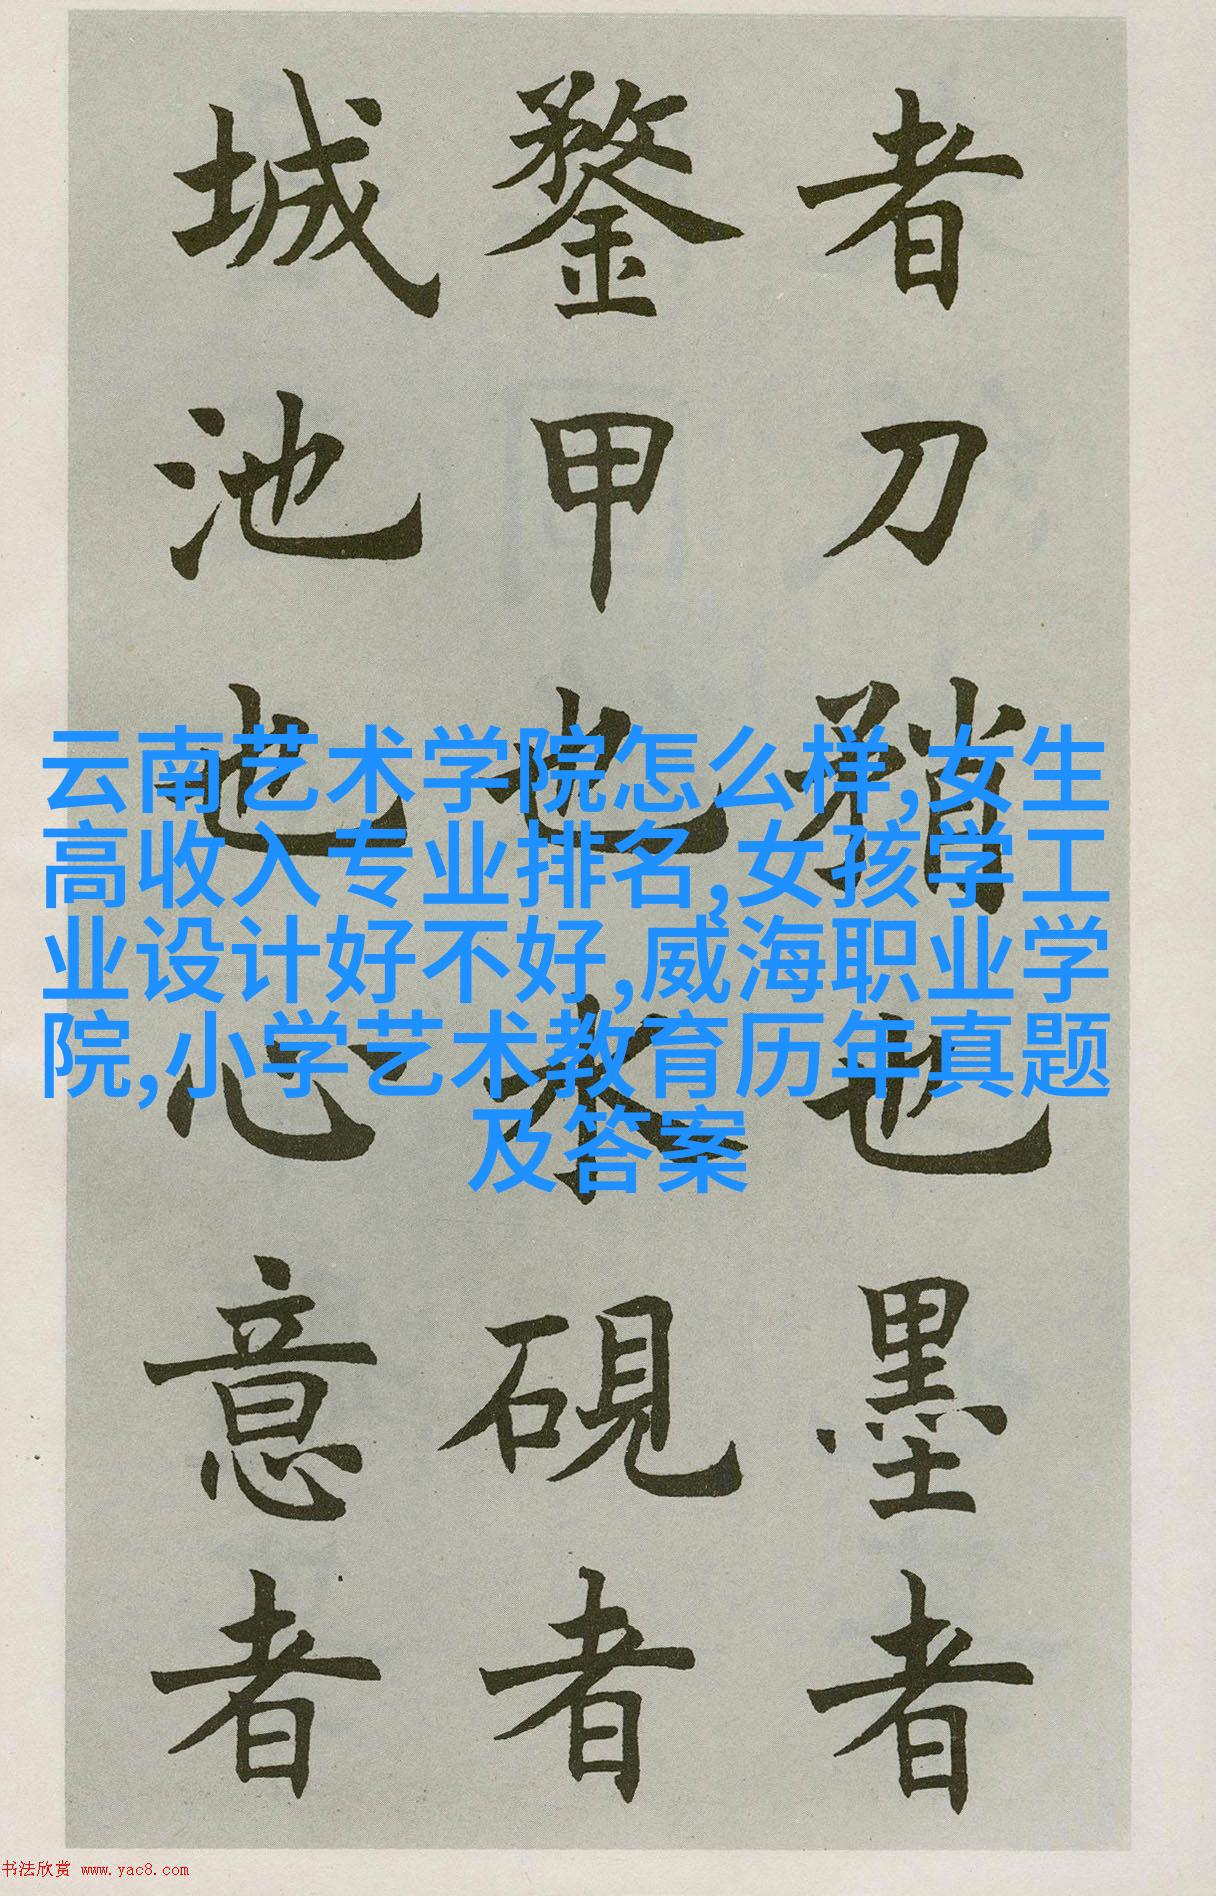 者刀矟也墨者
鍪甲也水硯者
城池也心意者
云南艺术学院怎么样,女生
高收入专业排名,女孩学工
业设计好不好,威海职业学
院,小学艺术教育历年真题
及答案
书法欣赏 www.yac8.com